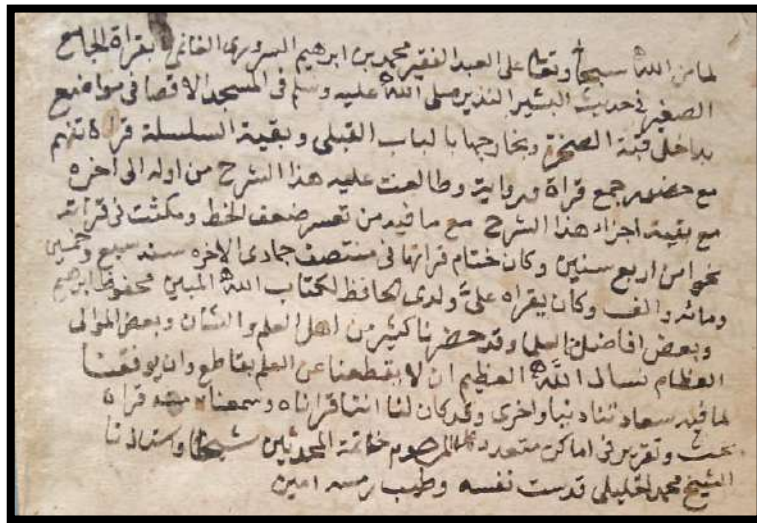 لما من الله سبحانه وتعالى على العبد الفقير محمد بن ابرهيم السروري الغانمي بقراة الجامع
الصغير في حديث البشير النذير صلى الله عليه وسلم في المسجد الاقصا في مواضع
بداخل قبة الصخرة وبخارجها بالباب القبلي وبقية السلسلة قراة تفهم
مع حضور جمع قراة ورواية وطالعت عليه هذا الشرح من اوله الى اخره
مع بقية اجزاء هذا الشرح مع ما فيه من تعسر ضعف الخط ومكثت في قراته
نحوا من اربع سنين وكان ختام قراتها في منتصف جمادى الاخره سنة سبع وخمسين
ومائة والف وكان يقراه علي ولدي الحافظ لكتاب الله المبين محفوظ ابرهيم
وبعض افاضل وقد حضرنا كثير من اهل العلم والشان وبعض الموالي
العظام نسال الله العظيم ان لا يقطعنا عن العلم بقاطع وان يوفقنا
لما فيه سعادتنا دنيا واخرى وقد كان لنا اننا قراناه وسمعناه قراة
بحث وتقرير في اماكن متعددة المرحوم خاتمة المحدثين شيخنا واستاذنا
الشيخ محمد الخليلي قدست نفسه وطيب رمسه امين